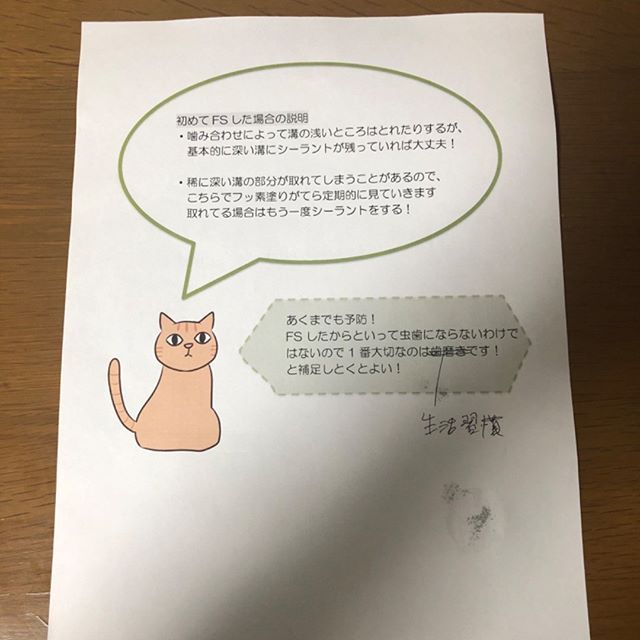 初めてFSした場合の説明
・噛み合わせによって溝の浅いところはとれたりするが、
基本的に深い溝にシーラントが残っていれば大丈夫！
・稀に深い溝の部分が取れてしまうことがあるので、
こちらでフッ素塗りがてら定期的に見ていきます
取れてる場合はもう一度シーラントをする！
あくまでも予防！
FSしたからといって虫歯にならないわけで
はないので1番大切なのは歯磨きです！
と補足しとくとよい！
生活習慣